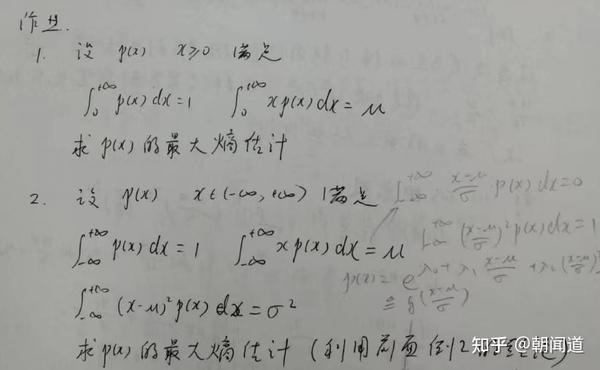 作业.
1. 设 p(x) x≥0 满足
∫₀^{+∞} p(x) dx = 1 ∫₀^{+∞} x p(x) dx = μ
求 p(x) 的最大熵估计
2. 设 p(x) x∈(-∞, +∞) 满足
∫_{-∞}^{+∞} (x-μ)/σ · p(x) dx = 0
∫_{-∞}^{+∞} p(x) dx = 1 ∫_{-∞}^{+∞} x p(x) dx = μ
∫_{-∞}^{+∞} ((x-μ)/σ)² p(x) dx = 1
p(x) = e^{λ₀+λ₁ (x-μ)/σ +λ₂ ((x-μ)/σ)²}
≙ g((x-μ)/σ)
∫_{-∞}^{+∞} (x-μ)² p(x) dx = σ²
求 p(x) 的最大熵估计 (利用前面例2的
知乎 @朝闻道